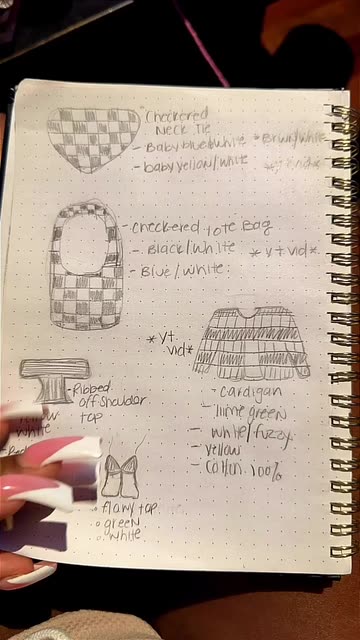 "Checkered
Neck Tie
- Baby blue/white * Brwn/white
- baby yellow/white
- Checkered Tote Bag
- Black/white * yt vid *
- Blue/white.
* yt
vid *
- Ribbed
off shoulder
top
white
- cardigan
- lime green
- white/fuzzy
- yellow
- Cotton 100%
flowy top
green
white